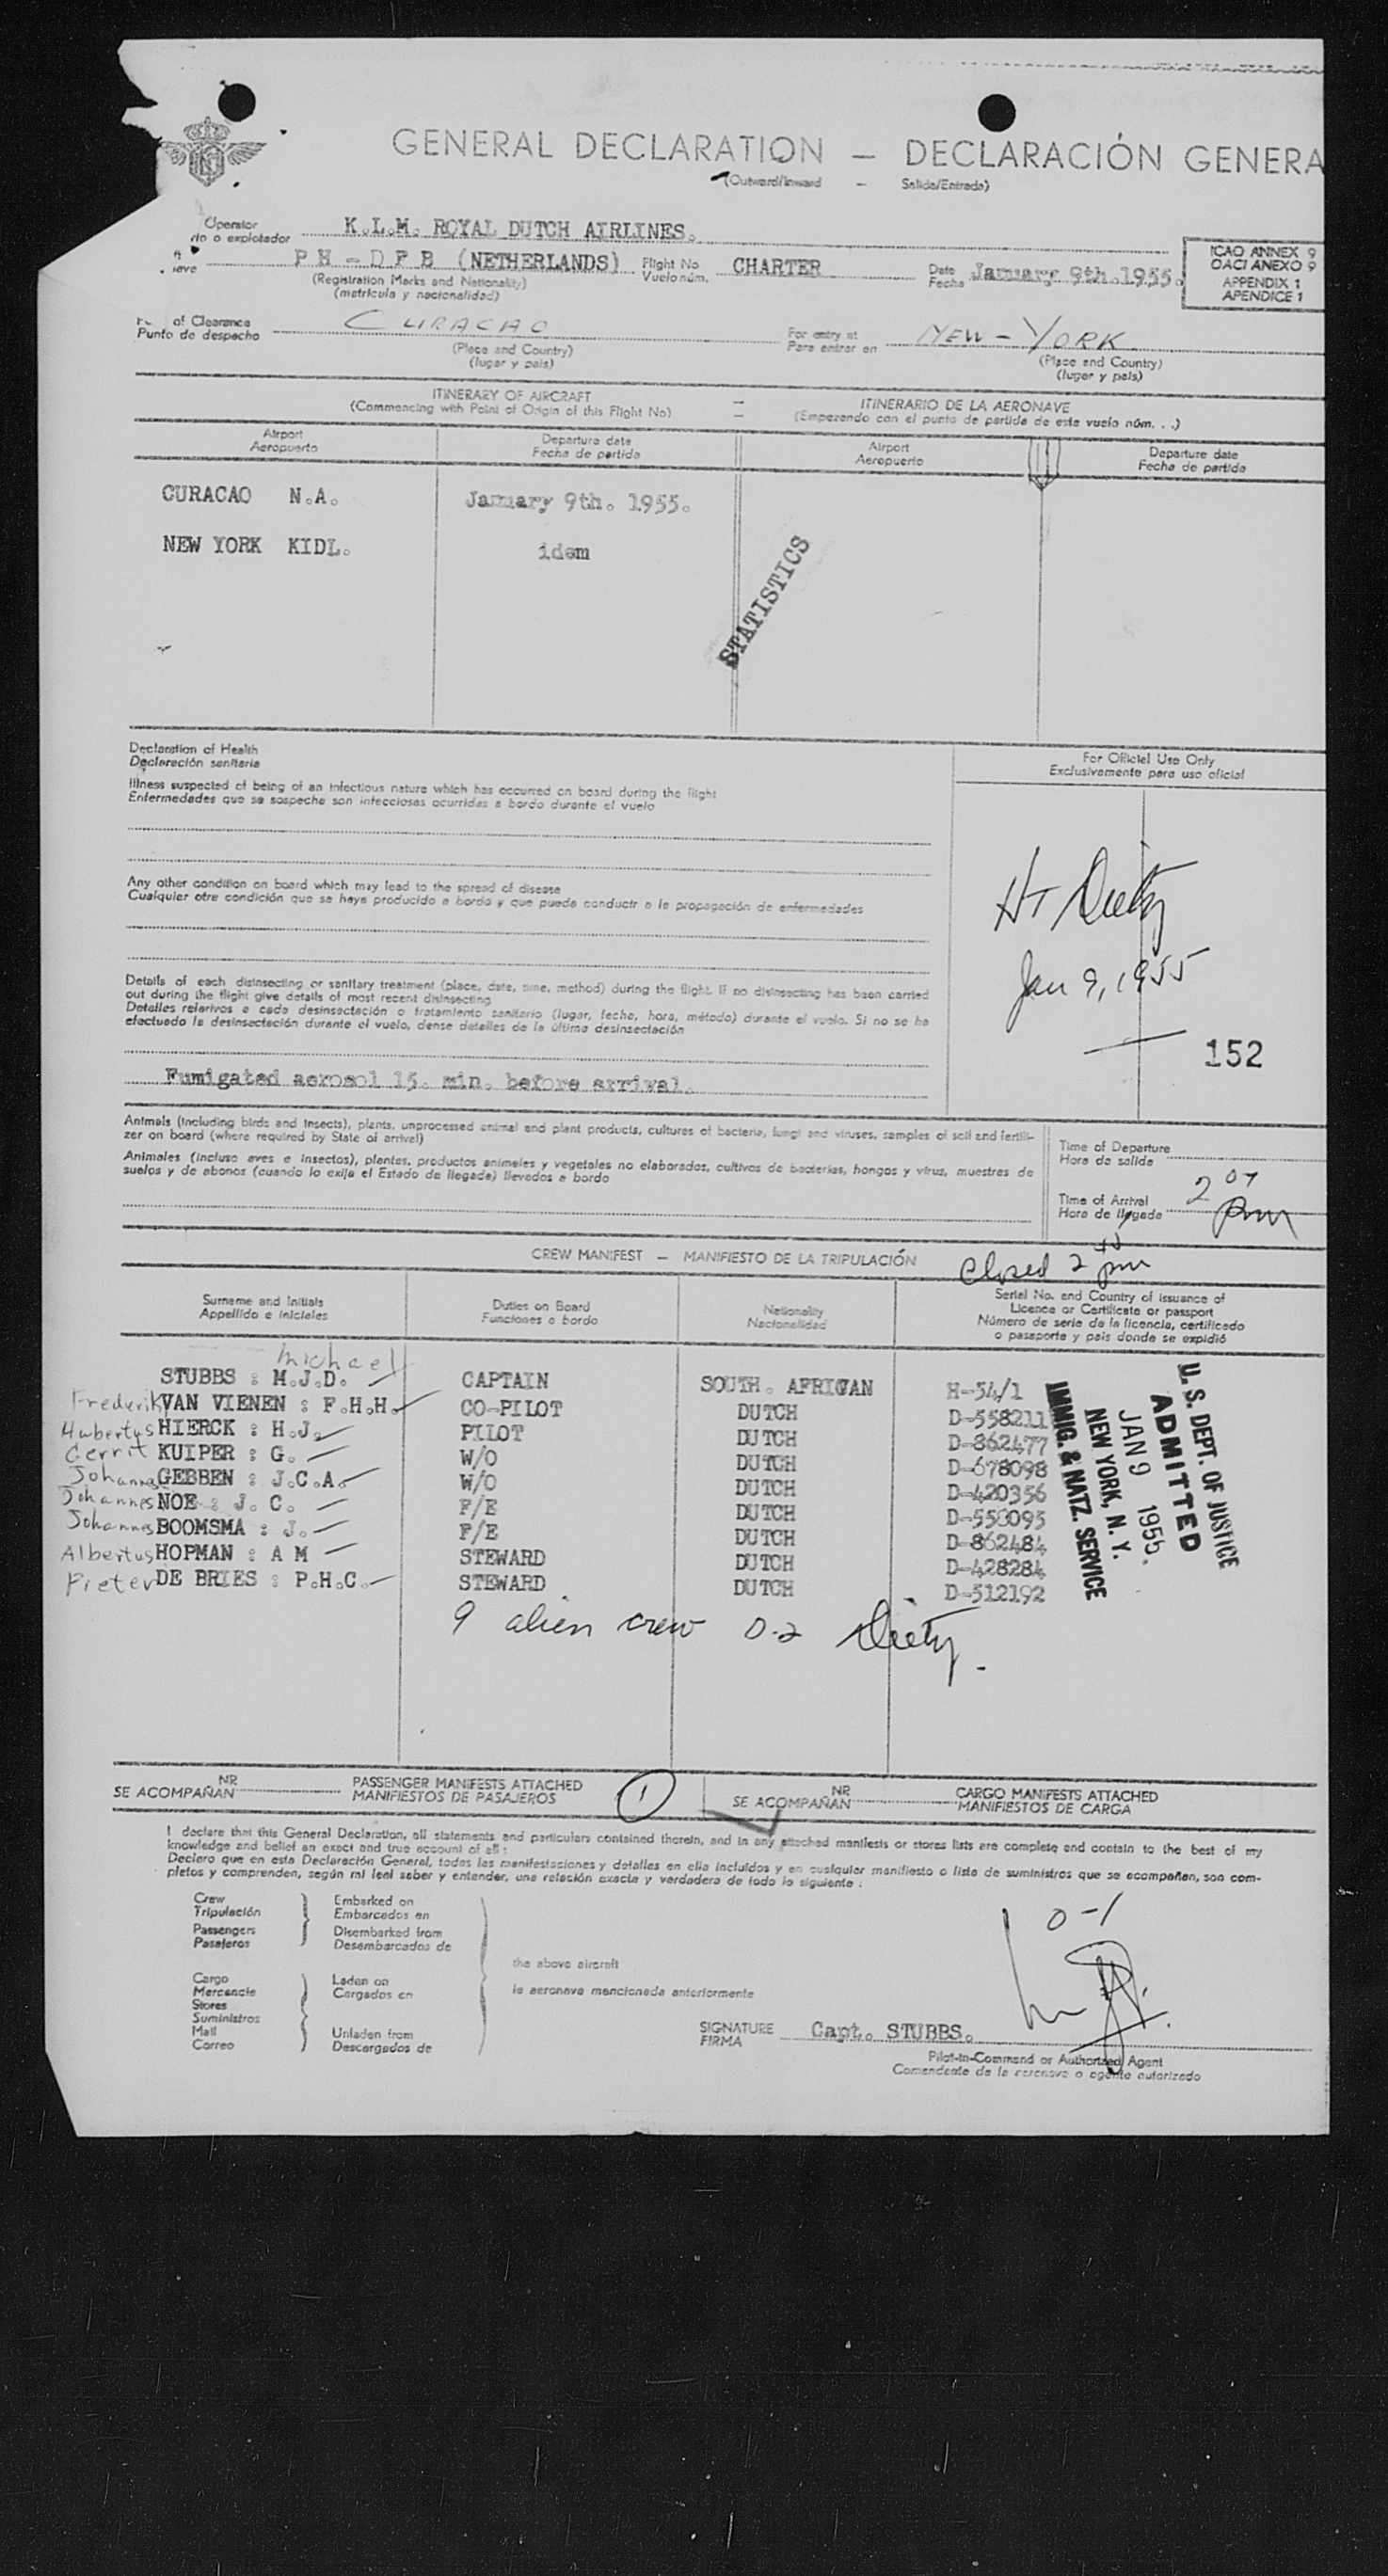 GENERAL DECLARATION — DECLARACIÓN GENERA
(Outward/Inward - Salida/Entrada)
Operator
rio o explotador K.L.M. ROYAL DUTCH AIRLINES.
PH - DFB (NETHERLANDS) Flight No Vuelo núm. CHARTER Date Fecha January 9th. 1955.
(Registration Marks and Nationality)
(matrícula y nacionalidad)
ICAO ANNEX 9
OACI ANEXO 9
APPENDIX 1
APENDICE 1
of Clearance
Punto de despacho CURACAO For entry at Para entrar en NEW-YORK
(Place and Country) (Place and Country)
(lugar y país) (lugar y país)
ITINERARY OF AIRCRAFT — ITINERARIO DE LA AERONAVE
(Commencing with Point of Origin of this Flight No) — (Empezando con el punto de partida de este vuelo núm. . .)
Airport Departure date Airport Departure date
Aeropuerto Fecha de partida Aeropuerto Fecha de partida
CURACAO N.A. January 9th. 1955.
NEW YORK KIDL. idem
STATISTICS
Declaration of Health
Declaración sanitaria
For Official Use Only
Exclusivamente para uso oficial
Illness suspected of being of an infectious nature which has occurred on board during the flight
Enfermedades que se sospeche son infecciosas ocurridas a bordo durante el vuelo
Any other condition on board which may lead to the spread of disease
Cualquier otra condición que se haya producido a bordo y que puede conducir a la propagación de enfermedades
Jan 9, 1955
Details of each disinsecting or sanitary treatment (place, date, time, method) during the flight. If no disinsecting has been carried
out during the flight give details of most recent disinsecting
Detalles relativos a cada desinsectación o tratamiento sanitario (lugar, fecha, hora, método) durante el vuelo. Si no se ha
efectuado la desinsectación durante el vuelo, dense detalles de la última desinsectación
152
Fumigated aerosol 15. min. before arrival.
Animals (including birds and insects), plants, unprocessed animal and plant products, cultures of bacteria, fungi and viruses, samples of soil and fertili-
zer on board (where required by State of arrival)
Animales (incluso aves e insectos), plantas, productos animales y vegetales no elaborados, cultivos de bacterias, hongos y virus, muestras de
suelos y de abonos (cuando lo exija el Estado de llegada) llevados a bordo
Time of Departure
Hora de salida
Time of Arrival
Hora de llegada 2 07 pm
CREW MANIFEST — MANIFIESTO DE LA TRIPULACIÓN Closed 2 45 pm
Surname and Initials Duties on Board Nationality Serial No. and Country of issuance of
Appellido e iniciales Funciones a bordo Nacionalidad Licence or Certificate or passport
Número de serie de la licencia, certificado
o pasaporte y país donde se expidió
Michael
STUBBS : M.J.D. CAPTAIN SOUTH. AFRICAN H-54/1
Frederik VAN VIENEN : F.H.H. CO-PILOT DUTCH D-558211
Hubertus HIERCK : H.J. PILOT DUTCH D-862477
Gerrit KUIPER : G. W/O DUTCH D-678098
Johannes GEBBEN : J.C.A. W/O DUTCH D-420356
Johannes NOE : J. C. F/E DUTCH D-550095
Johannes BOOMSMA : J. F/E DUTCH D-862484
Albertus HOPMAN : A M STEWARD DUTCH D-428284
Pieter DE BRIES : P.H.C. STEWARD DUTCH D-512192
U. S. DEPT. OF JUSTICE
ADMITTED
JAN 9 1955
NEW YORK, N. Y.
IMMIG. & NATZ. SERVICE
9 alien crew D-2
NR PASSENGER MANIFESTS ATTACHED 1 NR CARGO MANIFESTS ATTACHED
SE ACOMPAÑAN MANIFIESTOS DE PASAJEROS SE ACOMPAÑAN MANIFIESTOS DE CARGA
I declare that this General Declaration, all statements and particulars contained therein, and in any attached manifests or stores lists are complete and contain to the best of my
knowledge and belief an exact and true account of all :
Declaro que en esta Declaración General, todas las manifestaciones y detalles en ella incluidos y en cualquier manifiesto o lista de suministros que se acompañan, son com-
pletos y comprenden, según mi leal saber y entender, una relación exacta y verdadera de todo lo siguiente :
Crew Embarked on
Tripulación Embarcados en
Passengers Disembarked from
Pasajeros Desembarcados de
the above aircraft
Cargo Laden on
Mercancía Cargados en
la aeronave mencionada anteriormente
Stores
Suministros
Mail Unladen from
Correo Descargados de
0-1
SIGNATURE
FIRMA Capt. STUBBS.
Pilot-in-Command or Authorized Agent
Comandante de la aeronave o agente autorizado